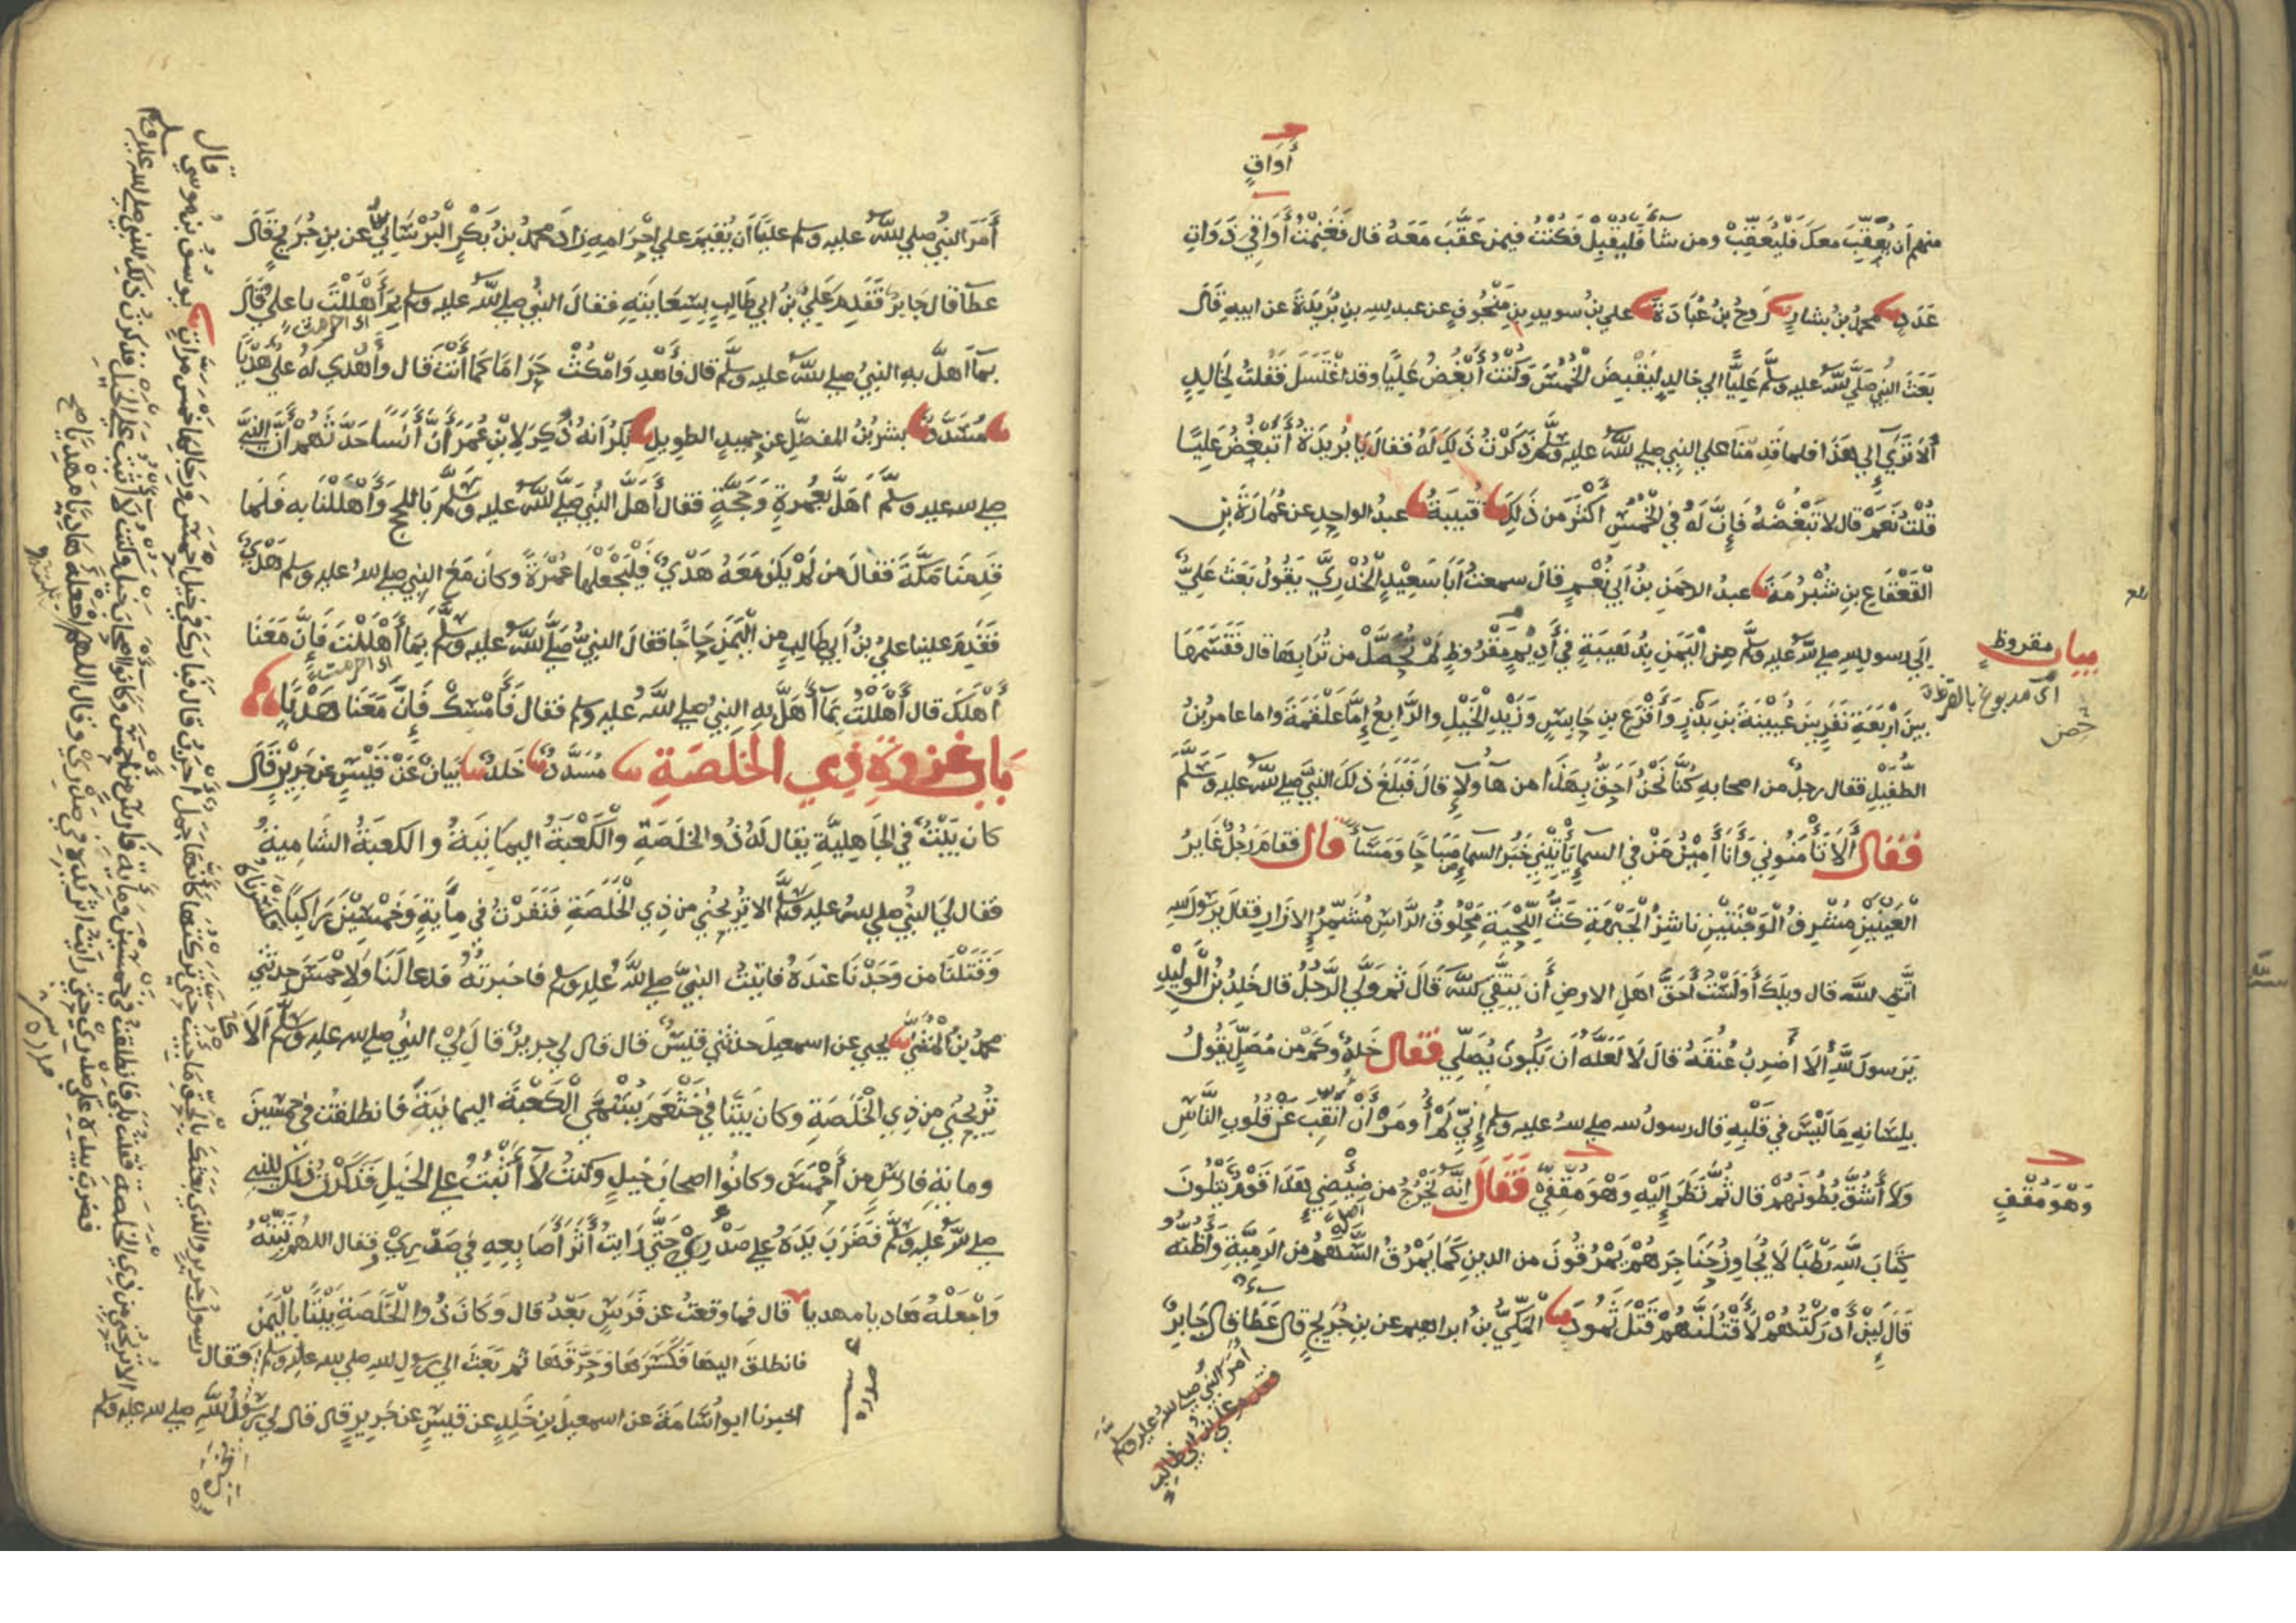 أَوَاقٍ
منهم أن يُعَقِّبَ معكَ فَلْيُعَقِّبْ ومن شآءَ فَلْيُقْبِلْ فكنتُ فيمَن عَقَّبَ مَعَهُ قال فغَنِمْتُ أَوَاقِيَ ذَوَاتِ
عَدَدٍ محمدُ بنُ بشارٍ رَوحُ بنُ عُبَادَةَ علي بنُ سويدِ بنِ مَنْجُوفٍ عن عبد الله بنِ بُرَيْدَةَ عن ابيهِ قَالَ
بَعَثَ النبيُ صَلَّي اللهُ عليه وسلَّم عَلِيًّا الي خالدٍ لِيَقْبِضَ الْخُمُسَ وَكُنْتُ أُبْغِضُ عَلِيًّا وقد اغْتَسَلَ فَقُلتُ لِخَالِدٍ
أَلَا تَرَي إلي هَذَا فلما قَدِمْنَا علي النبيِ صلي اللهُ عليه وسلَّم ذَكَرْتُ ذَلِكَ لَهُ فقالَ يَا بُرَيدَةُ أَتُبْغِضُ عَلِيًّا
قُلْتُ نَعَمْ قال لا تَبْغُضْهُ فَإِنَّ لَهُ في الْخُمُسِ أَكْثَرَ من ذَلِكَ قُتَيبَةُ عبدُ الواحِدِ عن عُمَارَةَ بنِ
الْقَعْقَاعِ بنِ شُبْرُمَةَ عبدُ الرحمَنِ بنُ أَبي نُعْمٍ قالَ سمعتُ أبَا سَعِيْدٍ الْخُدْرِيَّ يَقُولُ بَعَثَ عَليٌّ
إلَى رسولِ اللهِ صلي اللهُ عليه وسلَّم مِنَ الْيَمَنِ بِذُهَيبَةٍ في أَدِيْمٍ مَقْرُوظٍ لَمْ تُحَصَّلْ من تُرَابِهَا قال فَقَسَمَهَا
بينَ أَرْبَعَةِ نَفَرٍ بينَ عُيَيْنَةَ بنِ بَدْرٍ وَأَقْرَعِ بنِ حَابِسٍ وَزَيْدِ الْخَيْلِ والرَّابِعُ إمَّا عَلْقَمَةُ واما عامرُ بنُ
الطُّفَيْلِ فقال رجلٌ من اصحابِهِ كُنَّا نَحْنُ أَحَقَّ بِهَذَا من هآولآءِ قالَ فَبَلَغَ ذلكَ النبيَّ صلي اللهُ عليه وَسَلَّمَ
فَقَالَ أَلَا تَأْمَنُونِي وَأَنَا أَمِيْنُ مَنْ في السمآءِ يَأْتِيْنِي خَبَرُ السمآءِ صَبَاحًا وَمَسَآءً قال فقامَ رَجُلٌ غَائِرُ
الْعَيْنَيْنِ مُشْرِفُ الْوَجْنَتَيْنِ ناشِزُ الْجَبْهَةِ كَثُّ اللِّحْيَةِ مَحْلُوقُ الرَّاسِ مُشَمِّرُ الإزَارِ فقال يَرسُولَ الله
اتَّقِ اللهَ قال ويلَكَ أَوَلَسْتُ أَحَقَّ اهلِ الارضِ أَن يَتَّقِيَ اللهَ قَالَ ثم ولَّي الرَّجُلُ قال خَلِدُ بنُ الْوَلِيْدِ
يَرَسولَ اللهِ أَلَا أَضْرِبُ عُنُقَهُ قالَ لَا لَعَلَّهُ أن يَكُونَ يُصَلِّي فَقَالَ خَلِدٌ وَكَمْ من مُصَلٍّ يَقُولُ
بِلِسَانِهِ مَا لَيْسَ في قَلْبِهِ قال رسولُ الله صلي اللهُ عليه وسلم إِنِّي لَمْ أُومَرْ أَنْ أَنْقُبَ عَنْ قُلُوبِ النَّاسِ
وَلَا أَشُقَّ بُطُونَهُمْ قال ثُمَّ نَظَرَ إِلَيْهِ وَهْوَ مُقَفِّيٌ فَقَالَ إِنَّه يَخْرُجُ من ضِئْضِئِ هَذَا قَوْمٌ يَتْلُونَ
كِتَابَ اللهِ رَطْبًا لَا يُجَاوِزُ حَنَاجِرَهُمْ يَمْرُقُونَ من الدينِ كَمَا يَمْرُقُ السَّهْمُ من الرَمِيَّةِ وَأَظُنُّه
قَالَ لَئِنْ أَدْرَكْتُهُمْ لأَقْتُلَنَّهُمْ قَتْلَ ثَمُودَ الْمَكِّيُّ بنُ ابراهيم عن بن جُرَيجٍ قال عَطَا قال جَابرٌ
أمَرَ النبيُ صلي الله عليه وسلم
بيان مقروظٍ
اي مدبوغ بالقرظ
وَهْوَ مُقَفٍ
أَمَرَ النبيُ صلي اللهُ عليه وسلم عليًّا أن يُقِيْمَ علي إِحْرَامِهِ زادَ محمدُ بنُ بَكْرٍ الْبُرْسَانِيُّ عن بن جُرَيجٍ قَالَ
عطآ قال جَابرٌ فَقَدِمَ عَلِيُّ بنُ ابي طَالِبٍ بِسِعَايَتِهِ فقالَ النبيُ صلي اللهُ عليه وسلم بِمَ أَهْلَلْتَ يا علي قال
بمآ أهلَّ به النبيُ صلي اللهُ عليه وسلَّم قال فَأَهْدِ وَامْكُثْ حَرَامًا كَمَا أَنْتَ قال وأَهْدَي لَهُ عليٌّ هَدْيًا
مُسَدَّدٌ بشرُ بنُ المفضَّلِ عن حميدٍ الطويلِ بَكْرٌ أنهُ ذَكَرَ لِابْنِ عُمَرَ أَنَّ أَنَسًا حَدَّثَهُمْ أَنَّ النبيَّ
صلي الله عليه وسلَّم أَهَلَّ بعُمرةٍ وَحَجَّةٍ فقال أَهَلَّ النبيُّ صَلَّي اللهُ عليه وسَلَّم بالحج وَأَهْلَلْنَا به فَلَمَّا
قَدِمْنَا مَكَّةَ فقالَ من لَمْ يَكُنْ مَعَهُ هَدْيٌ فَلْيَجْعَلْهَا عُمْرَةً وكان مَعَ النبي صلي الله عليه وسلم هَدْيٌ
فَقَدِمَ علينا عليُ بنُ أَبي طالبٍ من الْيَمَنِ حَاجًّا فقالَ النبيُّ صَلَّي اللهُ عليه وسلَّم بِمَا أَهْلَلْتَ فَإِنَّ مَعَنَا
أَهْلَكَ قال أَهْلَلْتُ بِمَآ أَهَلَّ به النبيُ صلي اللهُ عليه وسلم فقال فَأَمْسِكْ فَإِنَّ مَعَنَا هَدْيًا
باب غزوة ذي الخَلَصَةِ مُسَدَّدٌ خَلدٌ بَيَانٌ عَنْ قَيْسٍ عن جَرِيْرٍ قَالَ
كان بَيْتٌ في الجَاهِلِيَّةِ يقال لَهُ ذُو الخلَصَةِ والْكَعْبَةُ اليمانيَةُ والكعبَةُ الشَامِيةُ
فقال لِيَ النبيُ صلي اللهُ عليه وسلَّم الا تُرِيحُنِي من ذِي الْخَلَصَةِ فَنَفَرْتُ في مِأَيةٍ وَخَمْسِيْنَ رَاكِبًا فكسرناه
وَقَتَلْنَا من وَجَدْنَا عندَهُ فاتيتُ النبيَّ صلي اللهُ عليه وسلم فاخبرتُهُ فدعا لَنَا ولاحْمَسَ حدثني
محمدُ بنُ الْمُثَنَّى يحيي عن اسمعيلَ حدثني قَيْسٌ قال قال لي جريرٌ قالَ لِيْ النبيُ صلي الله عليه وسلم أَلَا
تُرِيْحُنِي من ذِي الْخَلَصَةِ وكان بَيْتًا في خَثْعَمَ يُسَمَّي الْكَعْبَةَ اليمانيَةَ فانطلقت في خمسينَ
ومائةِ فارسٍ من أَحْمَسَ وكانُوا اصحابَ خَيلٍ وكنتُ لا أَثْبُتُ علي الخَيلِ فَذَكَرْتُ ذلك للنبي
صلي اللهُ عليه وسلَّم فَضَرَبَ يَدَهُ علي صَدْرِيْ حَتَّي رَايتُ أَثَرَ أَصَابِعِهِ في صَدْرِيْ وقال اللهم ثَبِّتْهُ
وَاجْعَلْهُ هاديا مهديا قال فما وقعتُ عن فَرَسٍ بَعْدُ قال وَكَانَ ذُوا الْخَلَصَةِ بَيْتًا بالْيَمَنِ
فانطلقَ اليها فَكَسَرَهَا وَحَرَّقَها ثم بَعَثَ الي رسولِ الله صلي الله عليه وسلم فَقَال
اخبرنا ابو اسَامَةَ عن اسمعيلَ بنِ خَلدٍ عن قيسٍ عن جَريرٍ قال قال لي رسُولُ اللهِ صلي الله عليه وسلم
الا تريحني من ذي الخلصة فقلت بلى فانطلقت في خمسين ومايةِ فارسٍ من احمسَ وكانوا اصحابَ خيلٍ وكنتُ لا أثبتُ علي الخيل فذكرتُ ذلكَ للنبي صلي الله عليه وسلم
فضربَ يدَهُ علي صدري حتي رايتُ أثرَ يدِه في صدري وقال اللهم ثبته واجعله هاديًا مهديًا
رسولُ جريرٍ والذي بعثك بالحق ما جيتُك حتي تركتها كانها جملٌ اجربُ قال فباركَ في خيلِ احمسَ ورجالها خمس مراتٍ يوسف بن موسي قال